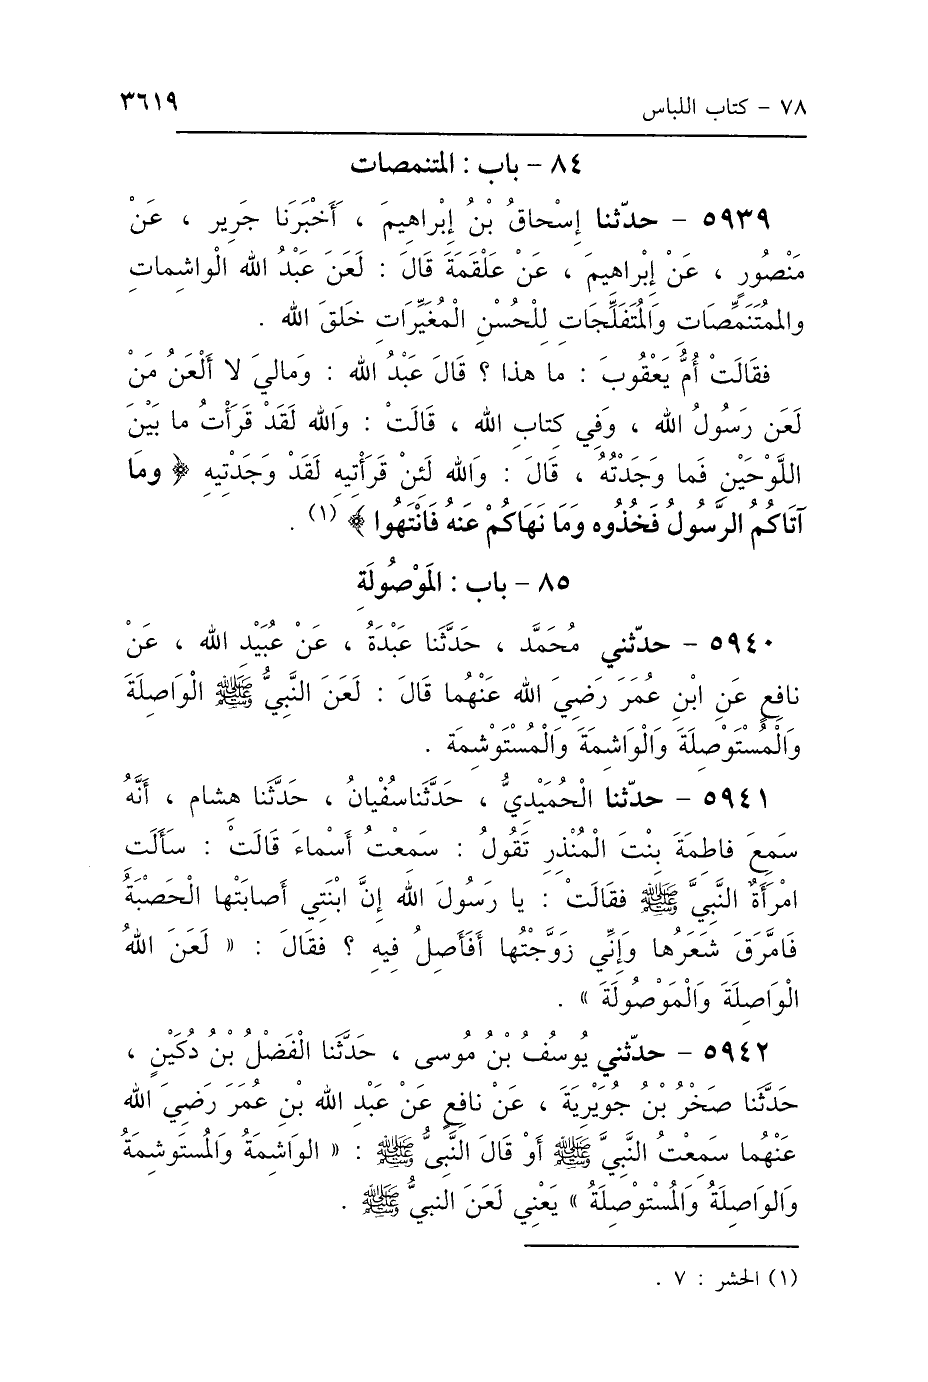 ٧٨ - كتاب اللباس ٣٦١٩
٨٤ - باب : المتنمصات
٥٩٣٩ - حدّثنا إسْحاقُ بْنُ إبْراهيمَ ، أَخْبَرَنا جَرير ، عَنْ
مَنْصُورٍ ، عَنْ إبْراهيمَ ، عَنْ عَلْقَمَةَ قَالَ : لَعَنَ عَبْدُ الله الْواشِمات
والمتَنَمِّصَات وَالمُتَفَلِّجَات للْحُسْنِ الْمغَيِّرَات خَلقَ الله .
فقَالَتْ أُمُّ يَعْقُوبَ : ما هذا ؟ قالَ عَبْدُ الله : وَماليَ لا أَلْعَنُ مَنْ
لَعَن رَسُولُ الله ، وَفي كتاب الله ، قَالَتْ : وَالله لَقَدْ قَرَأْتُ ما بَيْنَ
اللَّوْحَيْنِ فَما وَجَدْتُهُ ، قَالَ : وَالله لَئنْ قَرَأْتِيه لَقَدْ وَجَدْتِيه ﴿ وما
آتَاكُمُ الرَّسُولُ فَخُذُوه وَمَا نَهَاكُمْ عَنهُ فَانْتَهُوا ﴾ (١) .
٨٥ - باب : المَوْصُولَة
٥٩٤٠ - حدّثني مُحَمَّد ، حَدَّثَنا عَبْدَةُ ، عَنْ عُبَيْد الله ، عَنْ
نافِعٍ عَنِ ابْنِ عُمَرَ رَضيَ الله عَنْهُما قَالَ : لَعَنَ النَّبيُّ ﷺ الْوَاصِلَةَ
وَالْمُسْتَوْصِلَةَ وَالْوَاشمَةَ وَالْمُسْتَوْشمَة .
٥٩٤١ - حدّثنا الْحُمَيْديُّ ، حَدَّثَناسُفْيانُ ، حَدَّثَنا هشام ، أنَّهُ
سَمعَ فاطمَةَ بِنْتَ الْمُنْذر تَقُولُ : سَمعْتُ أسْماءَ قَالَتْ : سَأَلَت
امْرأَةٌ النَّبيَّ ﷺ فقَالَتْ : يا رَسُولَ الله إنَّ ابْنَتي أصابَتْها الْحَصْبَةُ
فَامَّرَقَ شَعَرُها وَإنِّي زَوَّجْتُها أفَأَصِلُ فيه ؟ فقَالَ : « لَعَنَ اللهُ
الْوَاصِلَةَ وَالْمَوْصُولَةَ » .
٥٩٤٢ - حدّثني يُوسُفُ بْنُ مُوسى ، حَدَّثَنا الْفَضْلُ بْنُ دُكَيْنٍ ،
حَدَّثَنا صَخْرُ بْنُ جُوَيْرِيَةَ ، عَنْ نافِعٍ عَنْ عَبْدِ الله بْنِ عُمَرَ رَضيَ الله
عَنْهُما سَمعْتُ النَّبيَّ ﷺ أوْ قَالَ النَّبيُّ ﷺ : « الوَاشِمَةُ وَالمُسْتَوشمَةُ
وَالوَاصِلَةُ وَالمُسْتوْصِلَةُ » يَعْني لَعَنَ النبيُّ ﷺ .
(١) الحشر : ٧ .